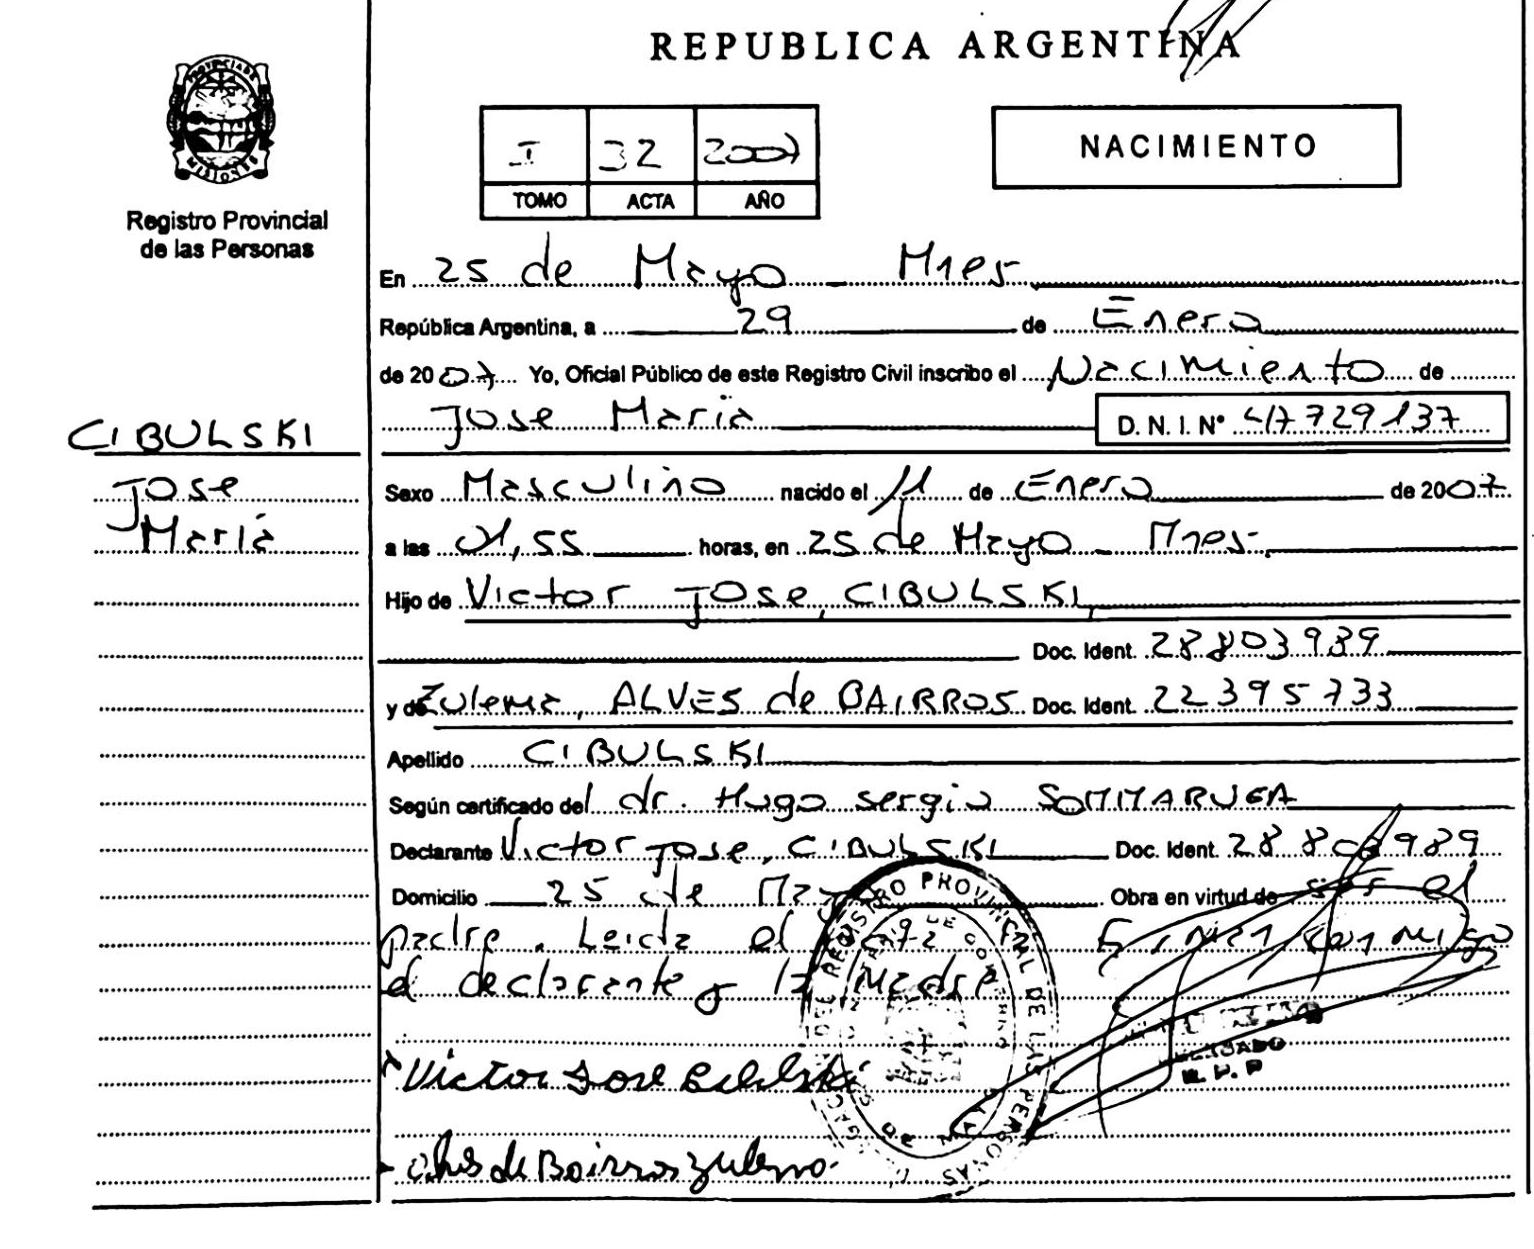 REPUBLICA ARGENTINA
PROVINCIA DE
MISIONES
Registro Provincial
de las Personas
I 32 2007
TOMO ACTA AÑO
NACIMIENTO
En 25 de Mayo Mnes
República Argentina, a 29 de Enero
de 2007 Yo, Oficial Público de este Registro Civil inscribo el Nacimiento de
Jose Maria D. N. I. Nº 47729137
CIBULSKI
Jose
Maria
Sexo Masculino nacido el 11 de Enero de 2007
a las 01,55 horas, en 25 de Mayo Mnes
Hijo de Victor Jose, CIBULSKI
Doc. Ident. 28803989
y de Zulema, ALVES de BAIRROS Doc. Ident. 22395733
Apellido CIBULSKI
Según certificado del dr. Hugo sergio SOMMARUGA
Declarante Victor Jose, CIBULSKI Doc. Ident. 28803989
Domicilio 25 de Mayo Obra en virtud de ser el
padre. Leida el acta Firman conmigo
el declarante y la Madre
DEL REGISTRO PROVINCIAL DE LAS PERSONAS
DE MAYO
Victor Jose Cibulski
Alves de Bairros Zulema